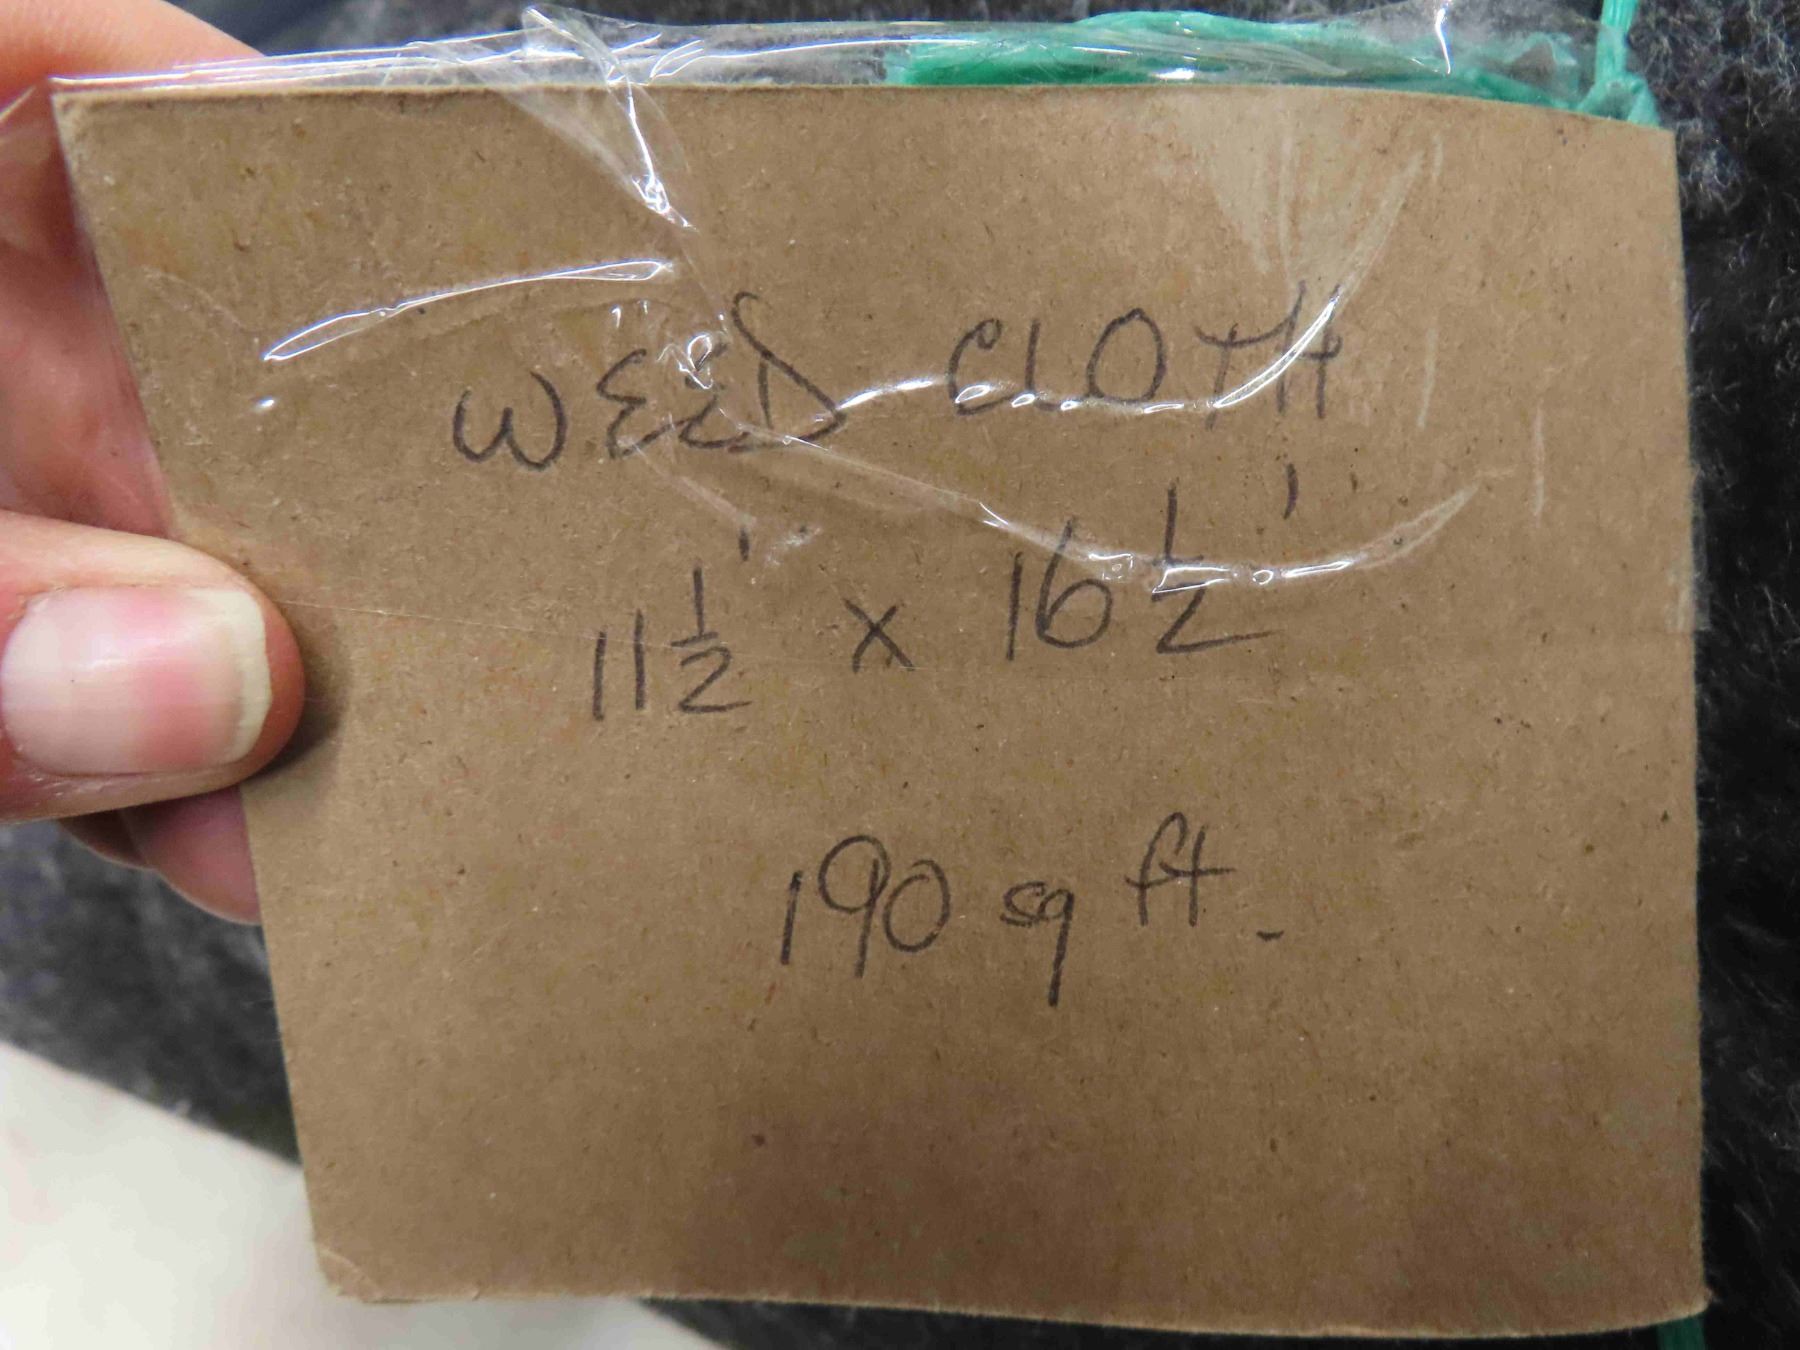 WEED CLOTH
11 1/2' x 16 1/2'
190 sq ft.